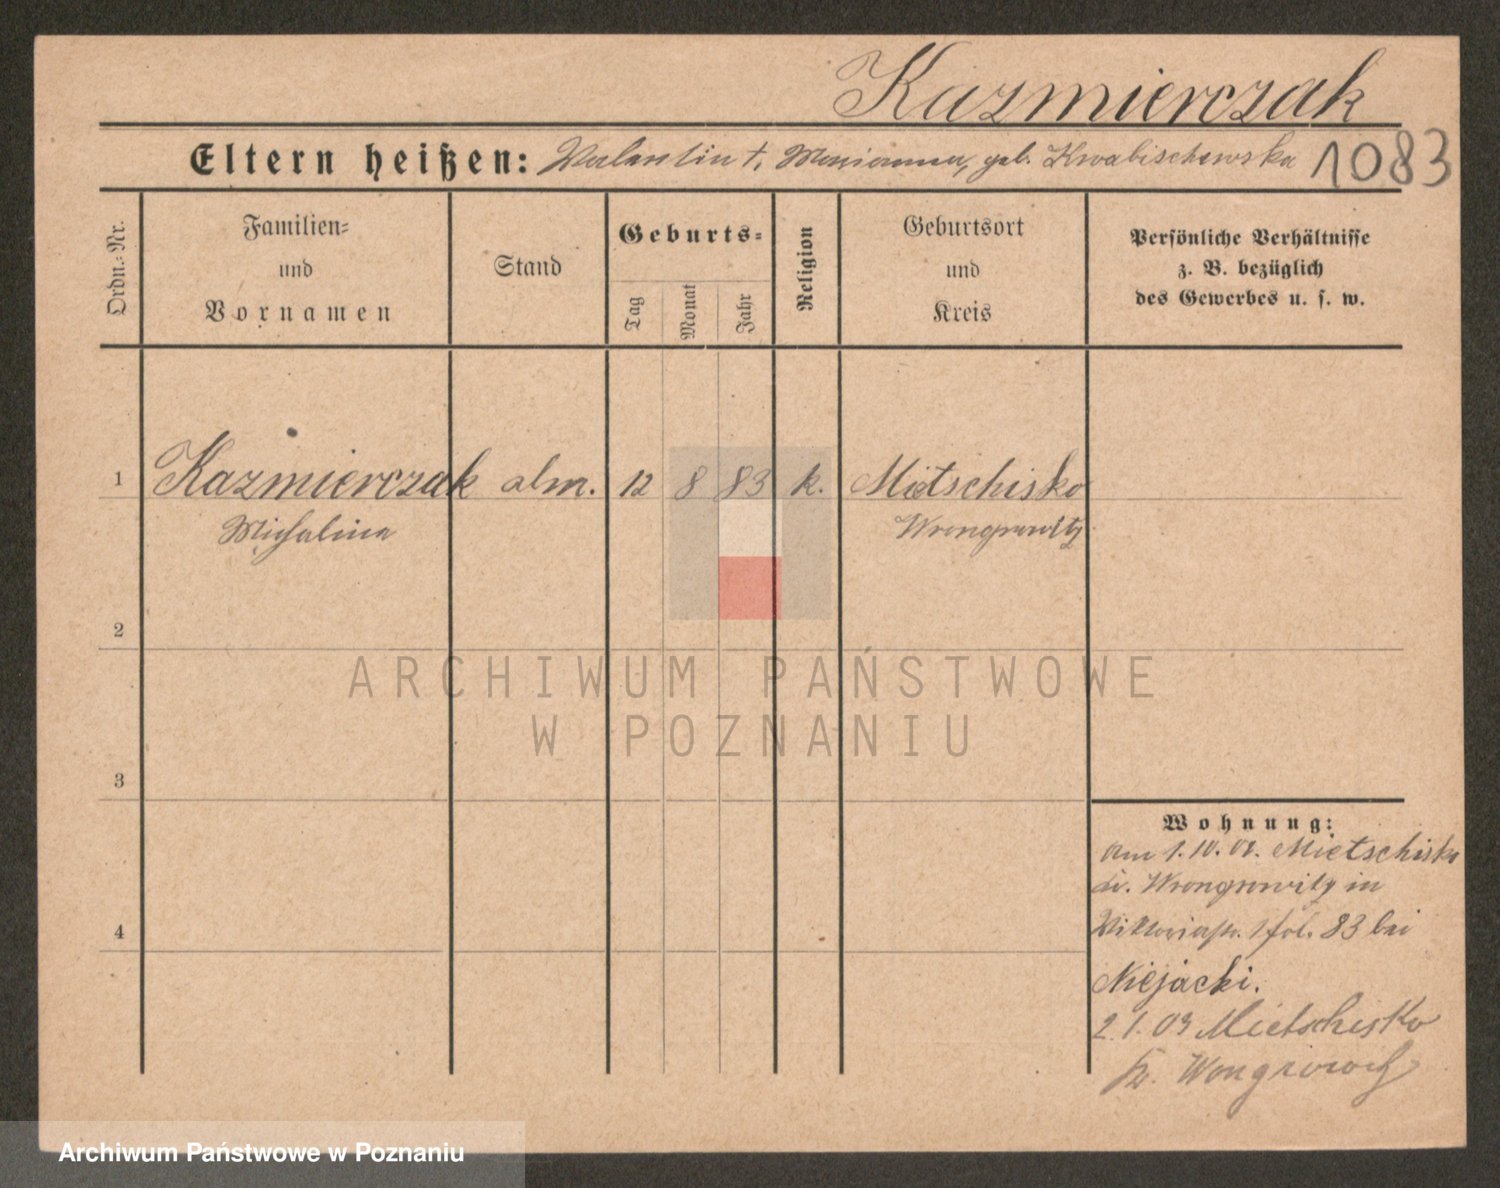 Kazmierczak
Eltern heißen: Valentin †, Marianna, geb. Kwabischewska 1083
Ordn.-Nr.
Familien-
und
Vornamen
Stand
Geburts-
Tag
Monat
Jahr
Religion
Geburtsort
und
Kreis
Persönliche Verhältnisse
z. B. bezüglich
des Gewerbes u. s. w.
1 Kazmierczak alm. 12 8 83 k. Mietschisko
Michalina Wrongrowitz
2
3
4
Wohnung:
Am 1.10.02. Mietschisko
Wrongrowitz in
Viktoriastr. 83 bei
Niejacki.
2.1.03 Mietschisko
Kr. Wongrowitz
ARCHIWUM PAŃSTWOWE
W POZNANIU
Archiwum Państwowe w Poznaniu